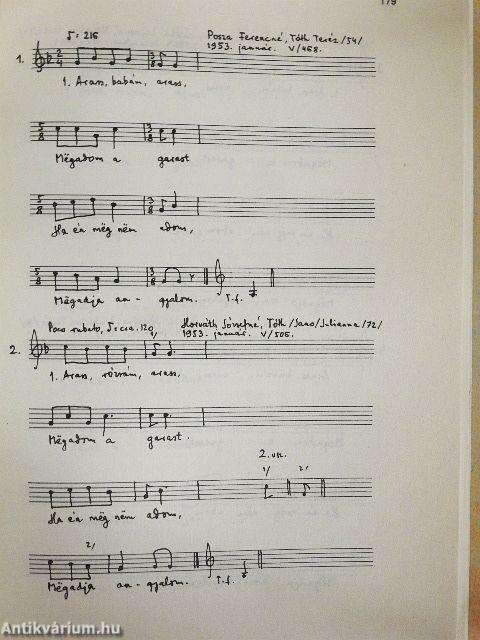 179
♪= 216
Posza Ferencné, Tóth Teréz /54/
1953. január. V/468.
1.
2/4 3/8
1. Arass, babám, arass,
5/8 3/8
Mëgadom a garast
5/8 3/8
Ha én mëg nëm adom,
5/8 3/8
Mëgadja an - gyalom. T.f.
Poco rubato, ♪= cca. 120
Horváth Józsefné, Tóth /Sano/ Julianna /72/
1953. január. V/505.
2.
1/
1. Arass, rózsám, arass,
Mëgadom a garast.
2. vsz.
1/ 2/
Ha én mëg nëm adom,
2/
Mëgadja an - gyalom. T.f.
Antikvárium.hu